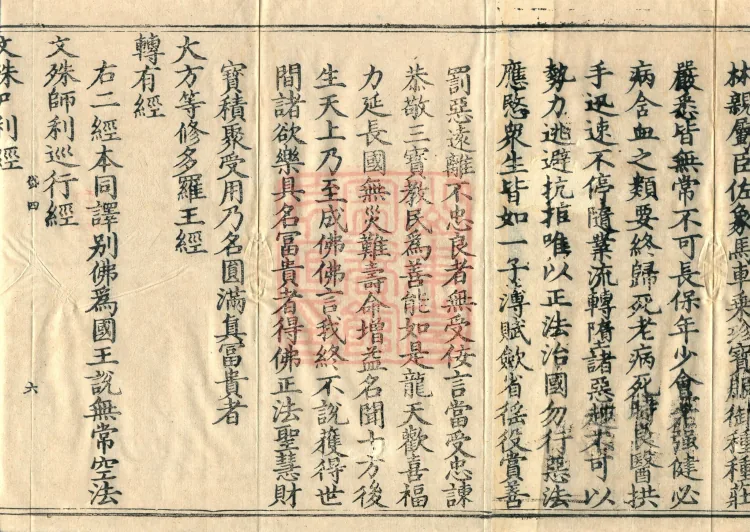 林親屬臣佐象馬車乘珍寶服御種種莊
嚴悉皆無常不可長保年少會老強健必
病含血之類要終歸死老病死時良醫拱
手迅速不停隨業流轉墮諸惡趣不可以
勢力逃避抗拒唯以正法治國勿行惡法
應愍衆生皆如一子薄賦歛省徭役賞善
罰惡遠離不忠良者無受佞言當受忠諫
恭敬三寶教民為善能如是龍天歡喜福
力延長國無災難壽命增益名聞十方後
生天上乃至成佛佛言我終不說獲得世
間諸欲樂具名冨貴者得佛正法聖慧財
寶積聚受用乃名圓滿真冨貴者
大方等修多羅王經
轉有經
右二經本同譯别佛為國王說無常空法
文殊師利巡行經
岱四
六
文殊尸利經